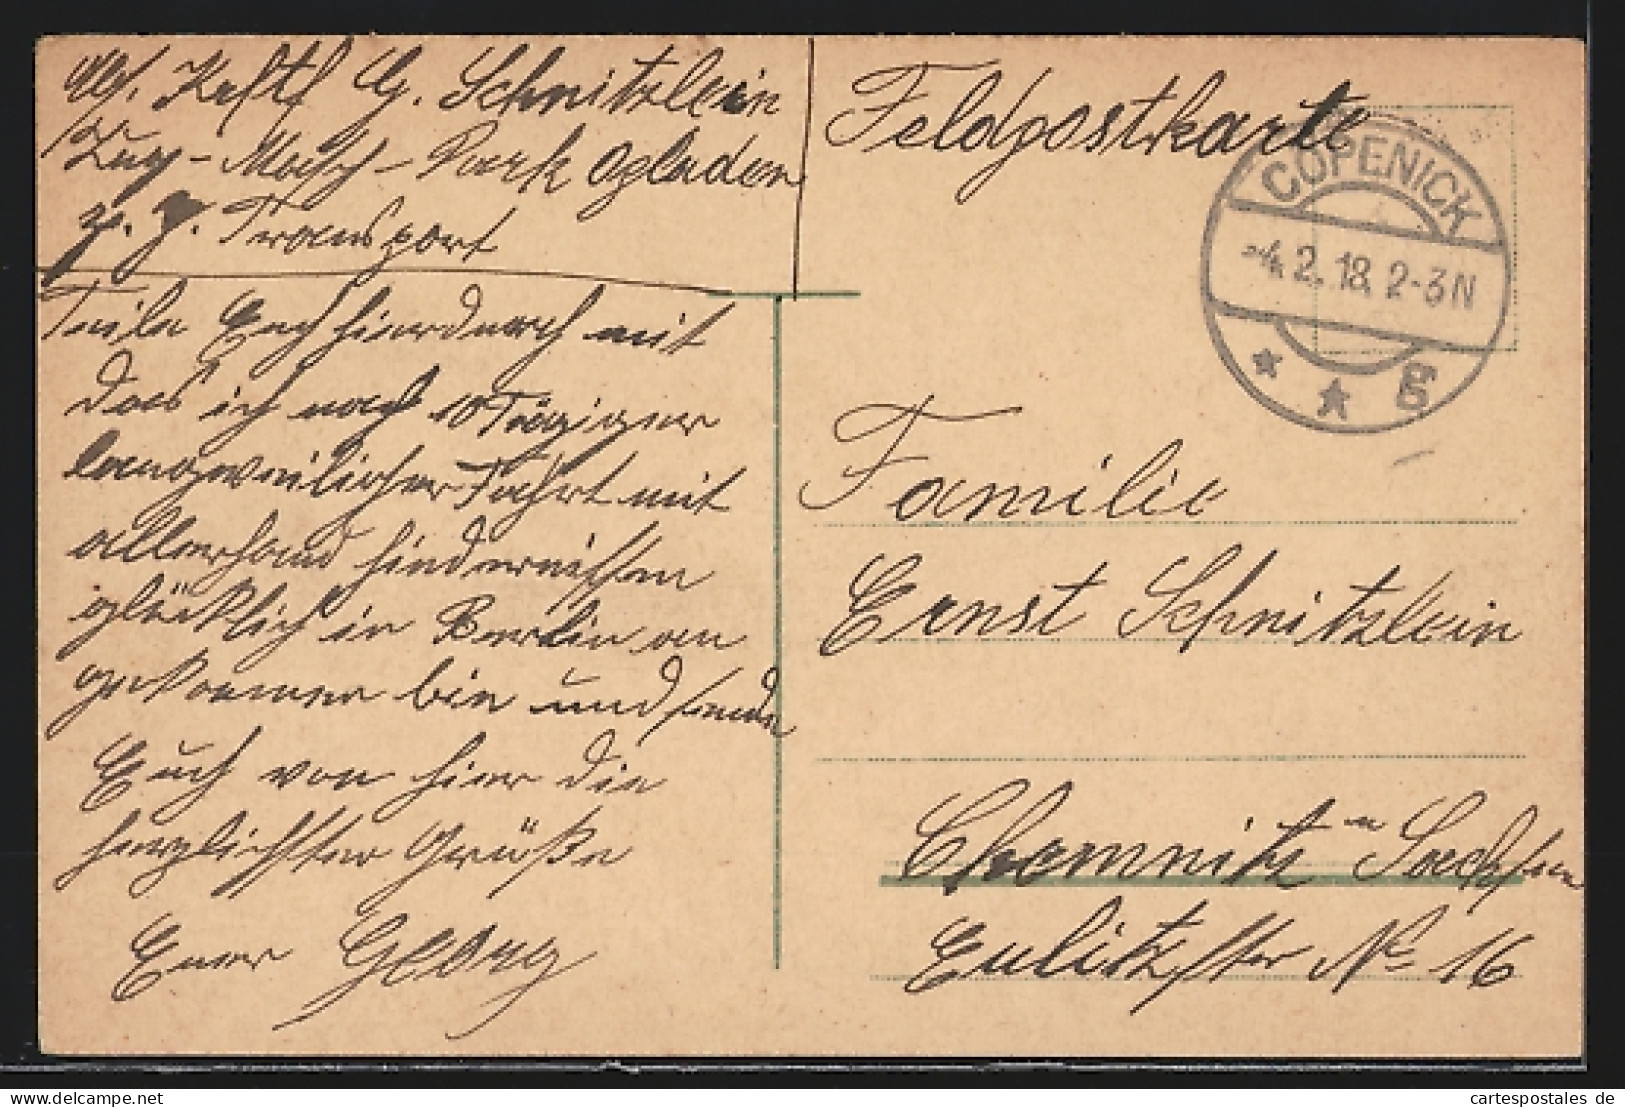 G. Schnitzlein
Park Opladen
z. Z. Transport
Teile Euch hierdurch mit
das ich nach 10 Tägiger
langweilicher Fahrt mit
allerhand hindernissen
glücklich in Berlin an
gekommen bin und sende
Euch von hier die
herzlichsten Grüße
Euer Georg
Feldpostkarte
CÖPENICK
-4. 2. 18. 2-3 N
* * g
Familie
Ernst Schnitzlein
Chemnitz Sachsen
Eulitzstr № 16
cartespostales de